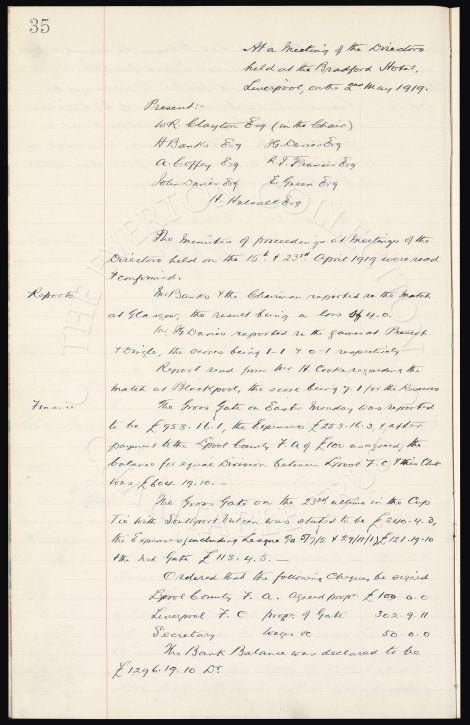 35
At a Meeting of the Directors
held at the Bradford Hotel,
Liverpool, on the 2nd May 1919.
Present:-
W.R. Clayton Esq (in the Chair)
H Banks Esq H.G. Davies Esq
A. Coffey Esq R.T. Francis Esq
John Davies Esq E. Green Esq
H. Halsall Esq
The Minutes of proceedings at Meetings of the
Directors held on the 15th & 23rd April 1919 were read
& confirmed.
Reports Mr Banks & the Chairman reported re the Match
at Glasgow, the result being a loss of 4.0.
Mr Davies reported re the games at Prescot
& Dingle, the scores being 1-1 & 0-1 respectively
Report read from Mr H. Cooke regarding the
match at Blackpool, the score being 7.1 for the Reserves
Finance The Gross Gate on Easter Monday was reported
to be £958.16.1, the Expenses £253.16.3, & after
payment to the Lpool County F.A of £100 as agreed, the
balance for equal Division between Lpool F.C, & this Club
was £604.19.10.-
The Gross Gate on the 23rd ultimo in the Cup
Tie with Southport Vulcan was stated to be £240.4.3,
the Expenses (including League %) £121.19.10
& the net Gate £118.4.5.-
Ordered that the following Cheques be signed
Lpool County F. A. Agreed propn £100 0.0
Liverpool F. C propn of Gate 302.9.11
Secretary Wages &c 50.0.0
The Bank Balance was declared to be
£1296.19.10 Dr.
THE EVERTON COLLECTION